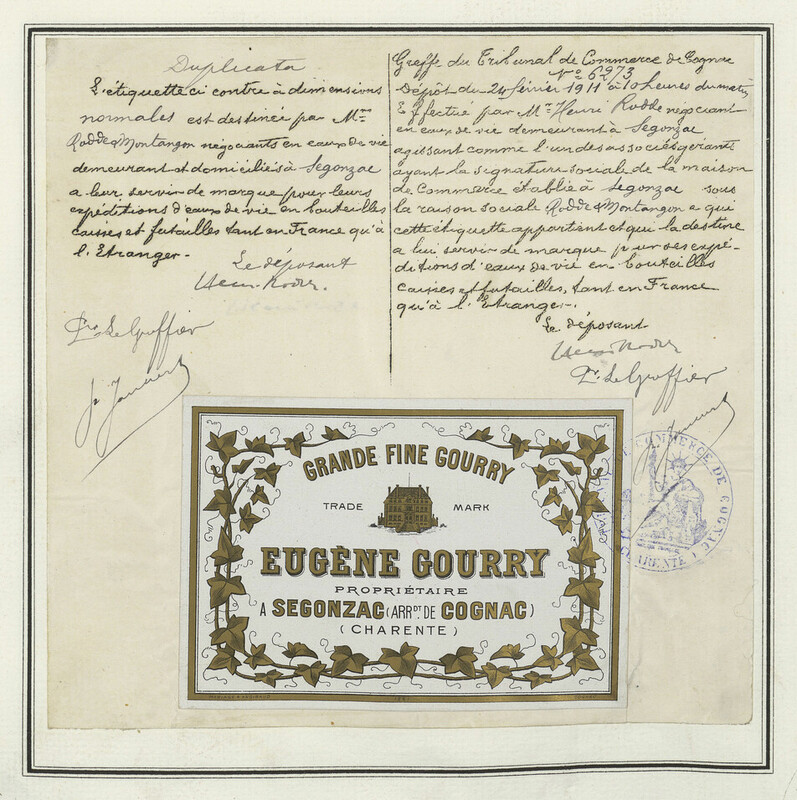 Duplicata
L'étiquette ci contre à dimensions
normales est destinée par Mrs
Rodde & Montangon négociants en eaux de vie
demeurant et domiciliés à Segonzac
a leur servir de marque pour leurs
expéditions d'eaux de vie en bouteilles
caisses et futailles tant en France qu'à
l'Etranger.
Le déposant
Henri Rodde.
Pr Le Greffier
Greffe du Tribunal de Commerce de Cognac
No 6973
Dépôt du 24 février 1911 à 10 heures du matin
Effectué par Mr Henri Rodde négociant
en eaux de vie demeurant à Segonzac
agissant comme l'un des associés gérants
ayant la signature sociale de la maison
de Commerce établie à Segonzac sous
la raison sociale Rodde & Montangon a qui
cette étiquette appartient et qui la destine
a lui servir de marque pour ses expé-
ditions d'eaux de vie en bouteilles
caisses et futailles, tant en France
qu'à l'Etranger.
Le déposant
Henri Rodde
Pr Le Greffier
GRANDE FINE GOURRY
TRADE MARK
EUGÈNE GOURRY
PROPRIÉTAIRE
A SEGONZAC (ARRDT. DE COGNAC)
(CHARENTE)
COMMERCE DE COGNAC
(CHARENTE)